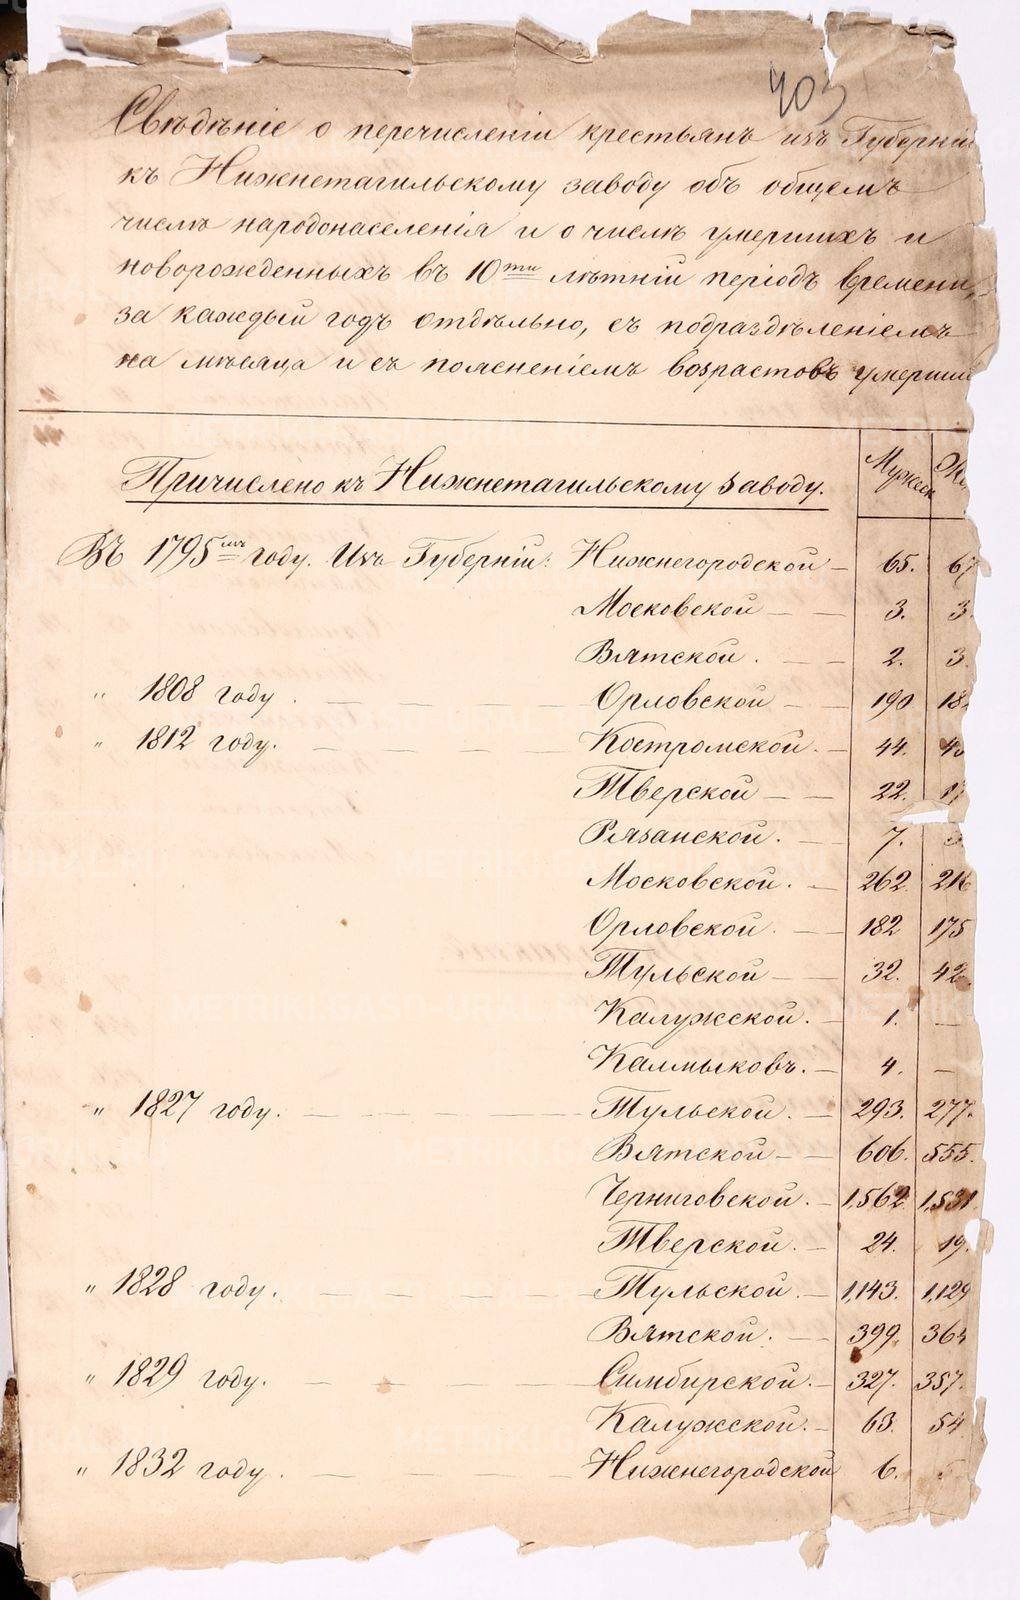 403
Свѣдѣніе о перечисленіи крестьянъ изъ Губерній
къ Нижнетагильскому заводу объ общемъ
числѣ народонаселенія и о числѣ умершихъ и
новорожденныхъ въ 10ти лѣтній періодъ времени,
за каждый годъ отдѣльно, съ подраздѣленіемъ
на мѣсяца и съ поясненіемъ возрастовъ умерши
Причислено къ Нижнетагильскому заводу. Мужеск Же
Въ 1795мъ году. Изъ Губерніи: Нижнегородской — 65. 67
Московской — — 3. 3.
Вятской. — — 2. 3.
„ 1808 году. — — — — Орловской — — 190 18
„ 1812 году. — — — — Костромской. — 44. 40
Тверской — — 22. 17
Рязанской. — 7.
Московской. — 262. 216
Орловской. — — 182 175
Тульской — — 32. 42.
Калужской. — 1. —
Калмыковъ. — 4. —
„ 1827 году. — — — — Тульской. — 293. 277.
Вятской — — 606. 555.
Черниговской. — 1,562 1,531
Тверской. — 24. 19.
„ 1828 году. — — — — Тульской. — 1,143. 1,129
Вятской. — — 399. 364
„ 1829 году. — — — — Симбирской. — 327. 357.
Калужской. — 63. 54
„ 1832 году. — — — — Нижнегородской 6.